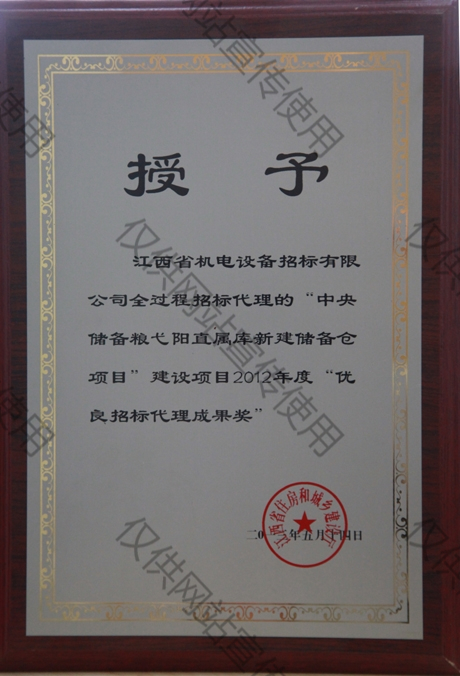 授予
江西省机电设备招标有限
公司全过程招标代理的“中央
储备粮弋阳直属库新建储备仓
项目”建设项目2012年度“优
良招标代理成果奖”
江西省住房和城乡建设厅
年五月十四日
仅供网站宣传使用
仅供网站宣传使用
仅供网站宣传使用